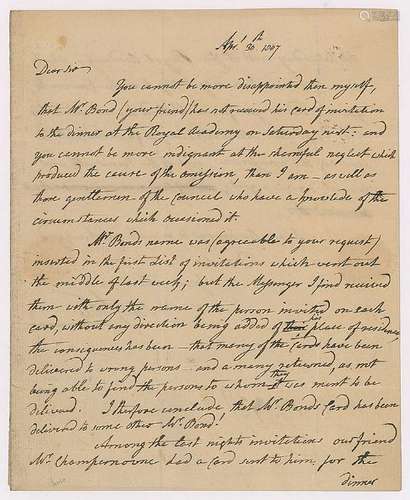 Apr.l 30th 1807
Dear Sir
You cannot be more disappointed then myself,
that Mr. Bond (your friend) has not received his card of invitation
to the dinner at the Royal Academy on Saturday next: and
you cannot be more indignant at the shameful neglect which
produced the cause of the omission, than I am – as well as
those gentlemen of the Council who have a knowledge of the
circumstances which occasioned it.
Mr. Bonds name was (agreeable to your request)
inserted in the first List of invitations which went out
the middle of last week; but the Messenger I find received
them with only the name of the person invited on each
card, without any direction being added of his place of residence
the consequences has been – that many of the Cards have been
delivered to wrong persons – and a many returned, as not
being able to find the persons to whom they was ment to be
deliverd. I therefore conclude that Mr. Bonds Card has been
deliverd to some other Mr. Bond.
Among the last nights invitations our friend
Mr. Champernowne had a Card sent to him, for the
dinner